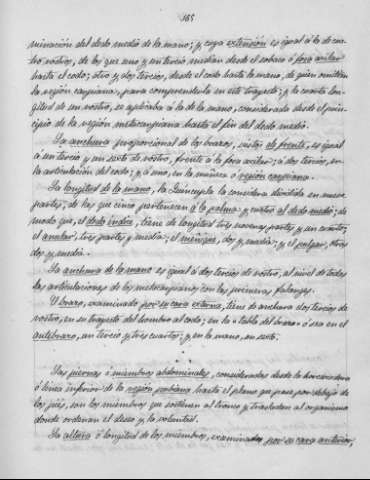 165
minación del dedo medio de la mano; y cuya extensión es igual á la de cua-
tro rostros, de los que uno y un tercio median desde el sobaco ó fosa axilar
hasta el codo; otro y dos tercios, desde el codo hasta la mano, de quien omitían
la región carpiana, para comprenderla en este trayecto; y la cuarta lon-
gitud de un rostro, se aplicaba á la de la mano, considerada desde el prin-
cipio de la región metacarpiana hasta el fin del dedo medio.
La anchura proporcional de los brazos, vistos de frente, es igual
á un tercio y un sexto de rostro, frente á la fosa axilar; á dos tercios, en
la articulación del codo; y á uno, en la muñeca ó región carpiana.
La longitud de la mano, la considera dividida en nueve
partes; de las que cinco pertenecen á la palma y cuatro al dedo medio; de
modo que, el dedo índice, tiene de longitud tres novenas partes y un cuarto;
el anular, tres partes y media; el meñique, dos y media; y el pulgar, otras
dos y media.
La anchura de la mano es igual á dos tercios de rostro, al nivel de todas
las articulaciones de los metacarpianos con las primeras falanges.
El brazo, examinado por su cara externa, tiene de anchura dos tercios de
rostro, en su trayecto del hombro al codo; en la "tabla del brazo" ó sea en el
antebrazo, un tercio y tres cuartos; y en la mano, un sexto.
Las piernas ó miembros abdominales, consideradas desde la
ó línea inferior de la región pubiana hasta el plano que pasa por debajo de
los piés, son los miembros que sostienen al tronco y trasladan al organismo
donde ordenan el deseo y la voluntad.
La altura ó longitud de los miembros, examinados por su cara anterior,